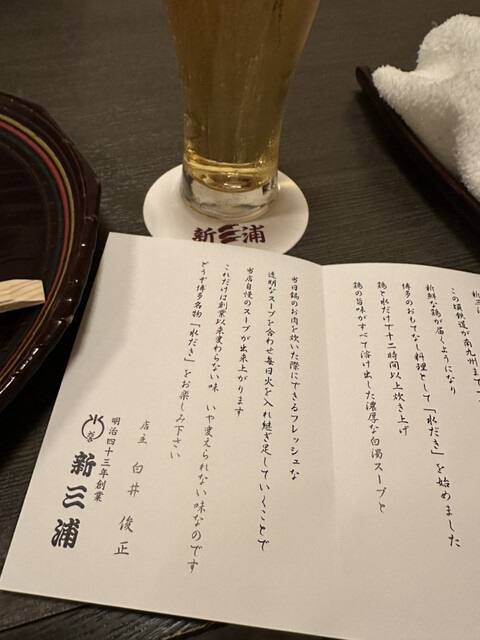 新三浦
この頃鉄道が南九州まで
新鮮な鶏が届くようになり
博多のおもてなし料理として「水だき」を始めました
鶏と水だけで十二時間以上炊き上げ
鶏の旨味がすべて溶け出した濃厚な白濁スープと
当日鶏のお肉を炊いた際にできるフレッシュな
透明なスープを合わせ毎日火を入れ継ぎ足していくことで
当店自慢のスープが出来上がります
これだけは創業以来変わらない味 いや変えられない味なのです
どうぞ博多名物「水だき」をお楽しみ下さい
店主 白井 俊正
明治四十三年創業
水
新三浦